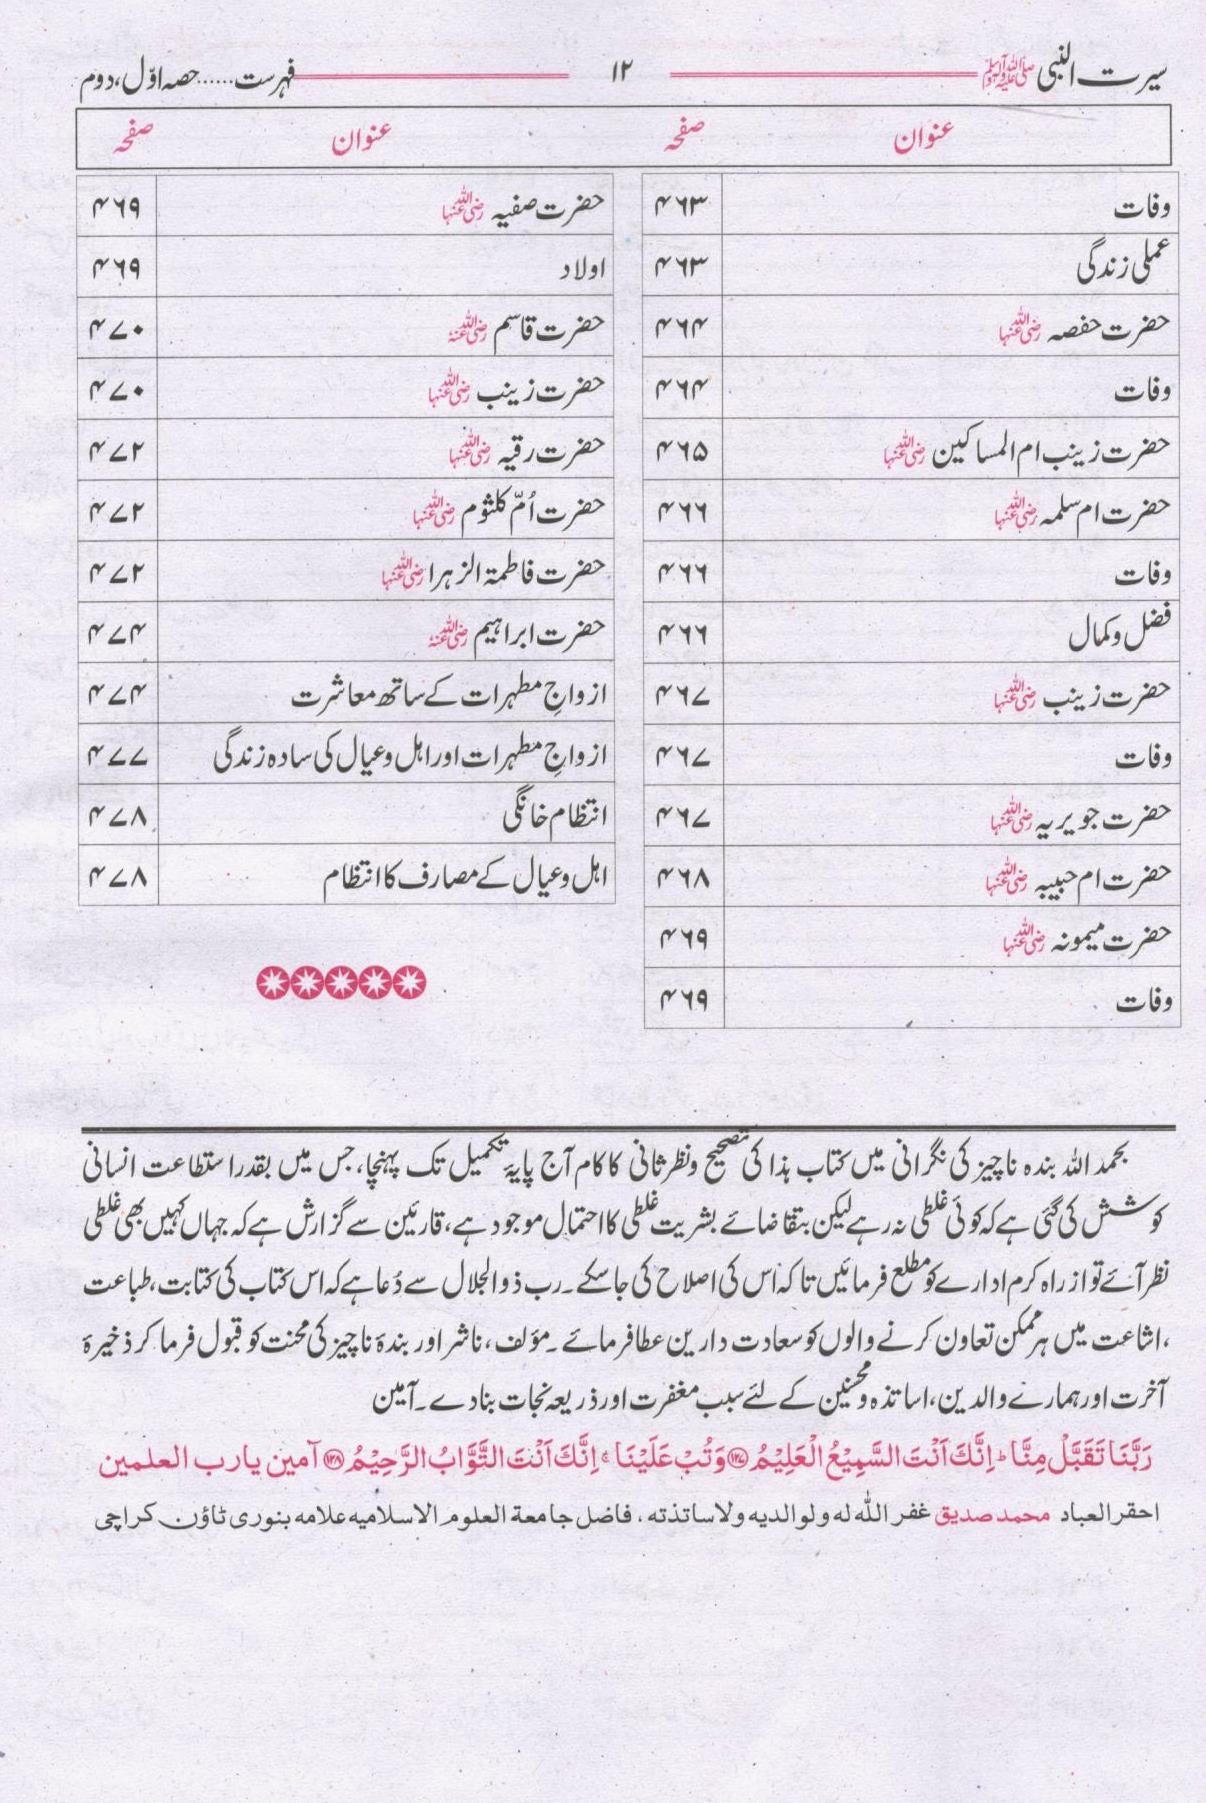 سیرت النبی ﷺ ۱۲ فہرست......حصہ اوّل، دوم
عنوان صفحہ عنوان صفحہ
وفات ۴۶۳
عملی زندگی ۴۶۳
حضرت حفصہ رضی اللہ عنہا ۴۶۴
وفات ۴۶۴
حضرت زینب ام المساکین رضی اللہ عنہا ۴۶۵
حضرت ام سلمہ رضی اللہ عنہا ۴۶۶
وفات ۴۶۶
فضل و کمال ۴۶۶
حضرت زینب رضی اللہ عنہا ۴۶۷
وفات ۴۶۷
حضرت جویریہ رضی اللہ عنہا ۴۶۷
حضرت ام حبیبہ رضی اللہ عنہا ۴۶۸
حضرت میمونہ رضی اللہ عنہا ۴۶۹
وفات ۴۶۹
حضرت صفیہ رضی اللہ عنہا ۴۶۹
اولاد ۴۶۹
حضرت قاسم رضی اللہ عنہ ۴۷۰
حضرت زینب رضی اللہ عنہا ۴۷۰
حضرت رقیہ رضی اللہ عنہا ۴۷۲
حضرت اُمّ کلثوم رضی اللہ عنہا ۴۷۲
حضرت فاطمۃ الزہرا رضی اللہ عنہا ۴۷۲
حضرت ابراہیم رضی اللہ عنہ ۴۷۴
ازواجِ مطہرات کے ساتھ معاشرت ۴۷۴
ازواجِ مطہرات اور اہل و عیال کی سادہ زندگی ۴۷۷
انتظام خانگی ۴۷۸
اہل و عیال کے مصارف کا انتظام ۴۷۸
بحمد اللہ بندہ ناچیز کی نگرانی میں کتاب ہذا کی تصحیح و نظر ثانی کا کام آج پایۂ تکمیل تک پہنچا، جس میں بقدر استطاعت انسانی
کوشش کی گئی ہے کہ کوئی غلطی نہ رہے لیکن بتقاضائے بشریت غلطی کا احتمال موجود ہے، قارئین سے گزارش ہے کہ جہاں کہیں بھی غلطی
نظر آئے تو از راہ کرم ادارے کو مطلع فرمائیں تاکہ اس کی اصلاح کی جاسکے۔ رب ذوالجلال سے دُعا ہے کہ اس کتاب کی کتابت، طباعت
،اشاعت میں ہر ممکن تعاون کرنے والوں کو سعادت دارین عطا فرمائے۔ مؤلف، ناشر اور بندۂ ناچیز کی محنت کو قبول فرما کر ذخیرۂ
آخرت اور ہمارے والدین، اساتذہ و محسنین کے لئے سبب مغفرت اور ذریعہ نجات بنا دے۔ آمین
رَبَّنَا تَقَبَّلْ مِنَّا ؕ اِنَّكَ اَنْتَ السَّمِيْعُ الْعَلِيْمُ ۝۱۲۷ وَتُبْ عَلَيْنَا ۚ اِنَّكَ اَنْتَ التَّوَّابُ الرَّحِيْمُ ۝۱۲۸ آمین یارب العلمین
احقر العباد محمد صدیق غفر اللہ له ولوالديه ولاساتذته، فاضل جامعة العلوم الاسلامیه علامه بنوری ٹاؤن کراچی